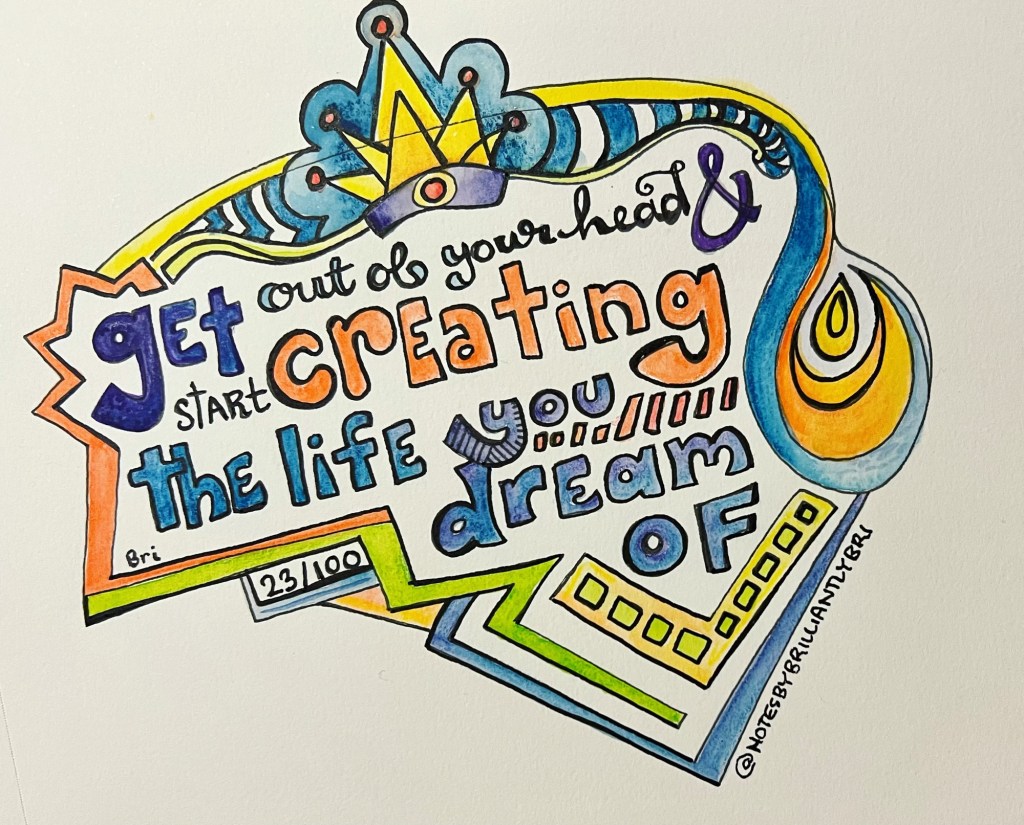 get out of your head &
start creating
the life you
dream
OF
Bri
23/100
@NOTESBYBRILLIANTLYBRI